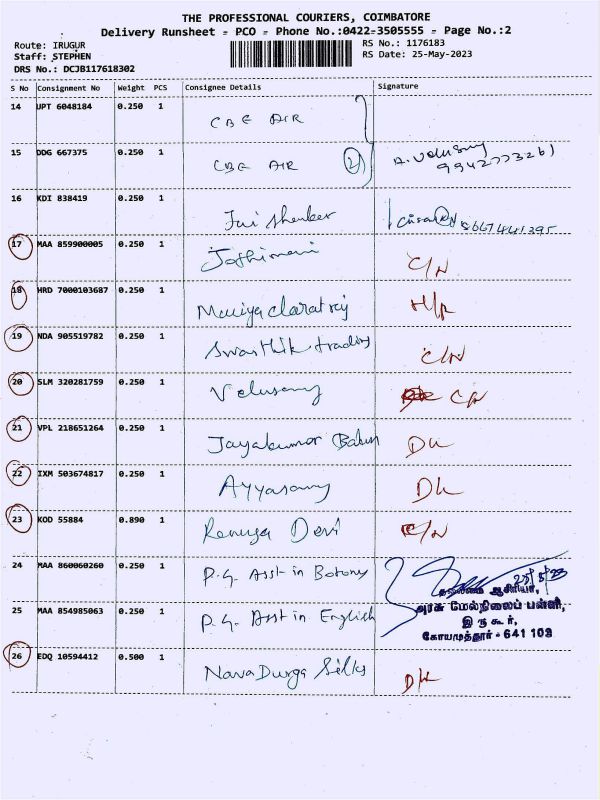 THE PROFESSIONAL COURIERS, COIMBATORE
Delivery Runsheet - PCO - Phone No.:0422-3505555 - Page No.:2
Route: IRUGUR RS No.: 1176183
Staff: STEPHEN RS Date: 25-May-2023
DRS No.: DCJB117618302
S No Consignment No Weight PCS Consignee Details Signature
14 UPT 6048184 0.250 1 CBE AIR
15 DDG 667375 0.250 1 CBE AIR 2 A. Velusamy
9942773261
16 KDI 838419 0.250 1 Jai Shanker 8667441395
17 MAA 859900005 0.250 1 Jothimani C/N
18 HRD 7000103687 0.250 1
19 NDA 905519782 0.250 1 Swasthik trading C/N
20 SLM 320281759 0.250 1 Velusamy
21 VPL 218651264 0.250 1 Jayakumar Babu DL
22 IXM 503674817 0.250 1 Ayyasamy DL
23 KOD 55884 0.890 1 Renuga Devi C/N
24 MAA 860060260 0.250 1 P.G. Asst in Botony 25/5/23
தலைமை ஆசிரியர்,
அரசு மேல்நிலைப் பள்ளி,
25 MAA 854985063 0.250 1 P.G. Asst in English இருகூர்,
கோயமுத்தூர் - 641 103
26 EDQ 10594412 0.500 1 Nava Durga Silks DL